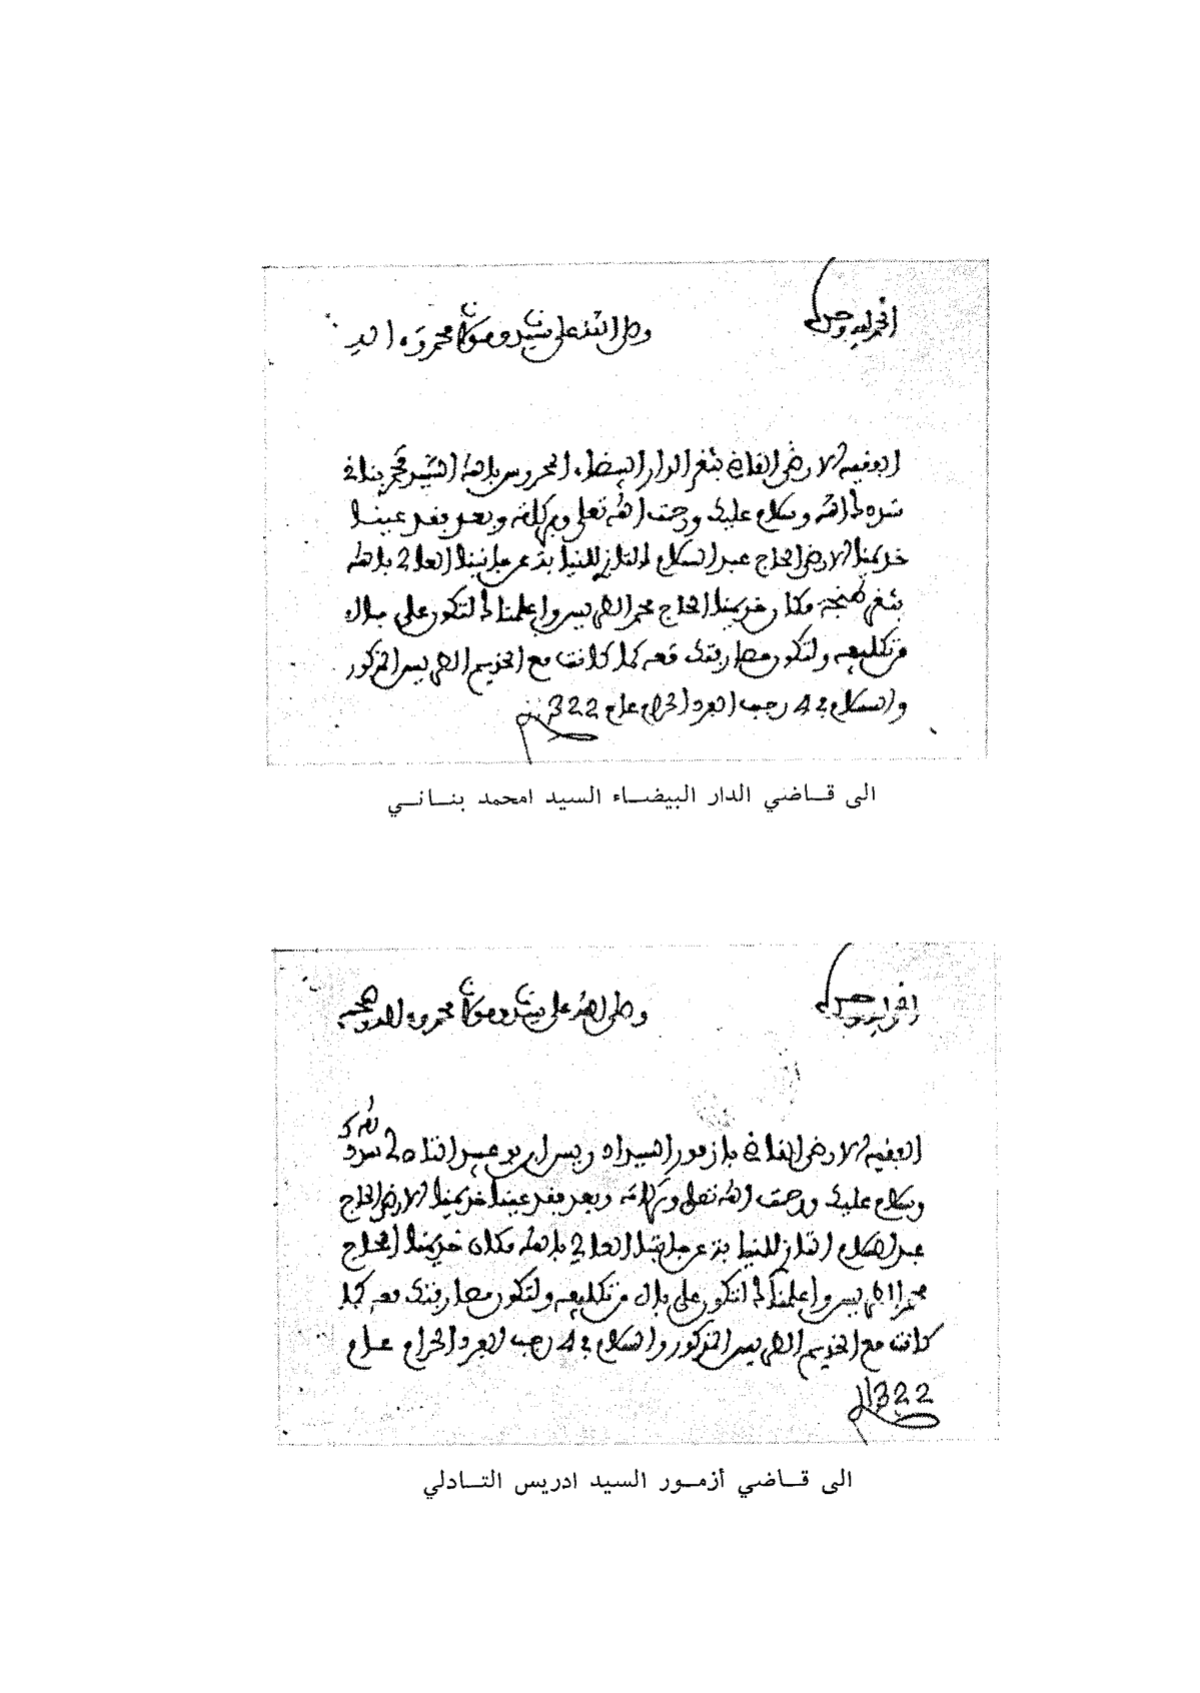 الحمد لله وحده
وصلى الله على سيدنا ومولانا محمد وآله
الفقيه الارضى القاضي بثغر الدار البيضاء المحروس بالله السيد محمد بناني
سددك الله وسلام عليك ورحمت الله تعلى وبركاته وبعد فقد عينا
خديمنا الارضى الحاج عبد السلام التازي للنيابة عن جانبنا العالي بالله
بثغر طنجة مكان خديمنا الحاج محمد الطريس واعلمناك لتكون على بال
من تكليفه ولتكون مصارفتك معه كما كانت مع الخديم الطريس المذكور
والسلام في 4 رجب الفرد الحرام عام 1322
الى قاضي الدار البيضاء السيد امحمد بناني
الحمد لله وحده
وصلى الله على سيدنا ومولانا محمد وآله وصحبه
الفقيه الارضى القاضي بازمور السيد ادريس بن عبد التادلي سددك الله
وسلام عليك ورحمت الله تعلى وبركاته وبعد فقد عينا خديمنا الارضى الحاج
عبد السلام التازي للنيابة عن جانبنا العالي بالله مكان خديمنا الحاج
محمد الطريس واعلمناك لتكون على بال من تكليفه ولتكون مصارفتك معه كما
كانت مع الخديم الطريس المذكور والسلام في 4 رجب الفرد الحرام عام
1322
الى قاضي أزمور السيد ادريس التادلي